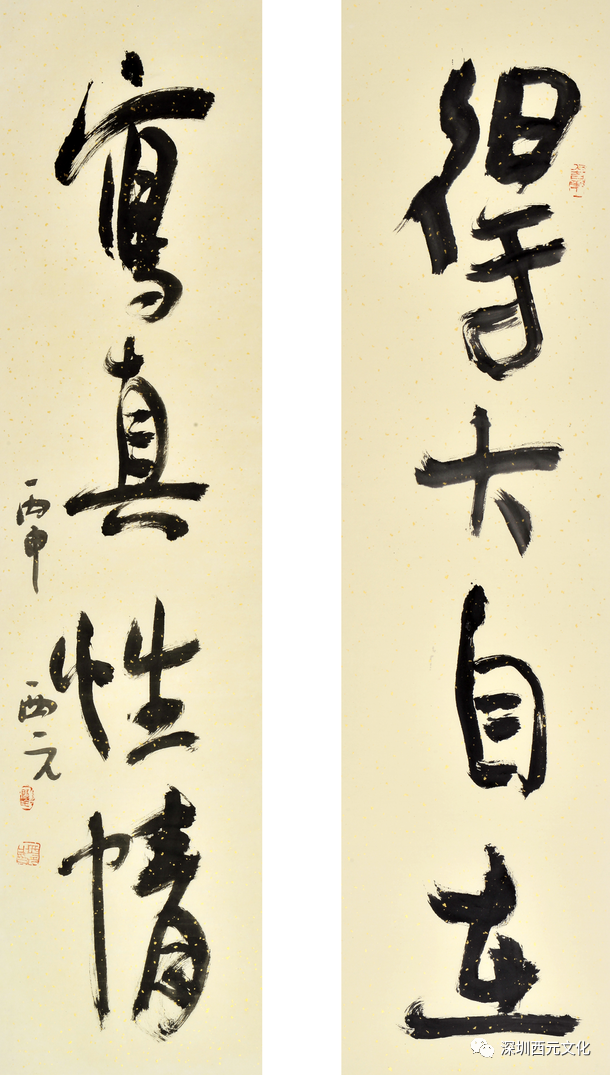 得大自在
寫真性情
丙申 西元
深圳西元文化